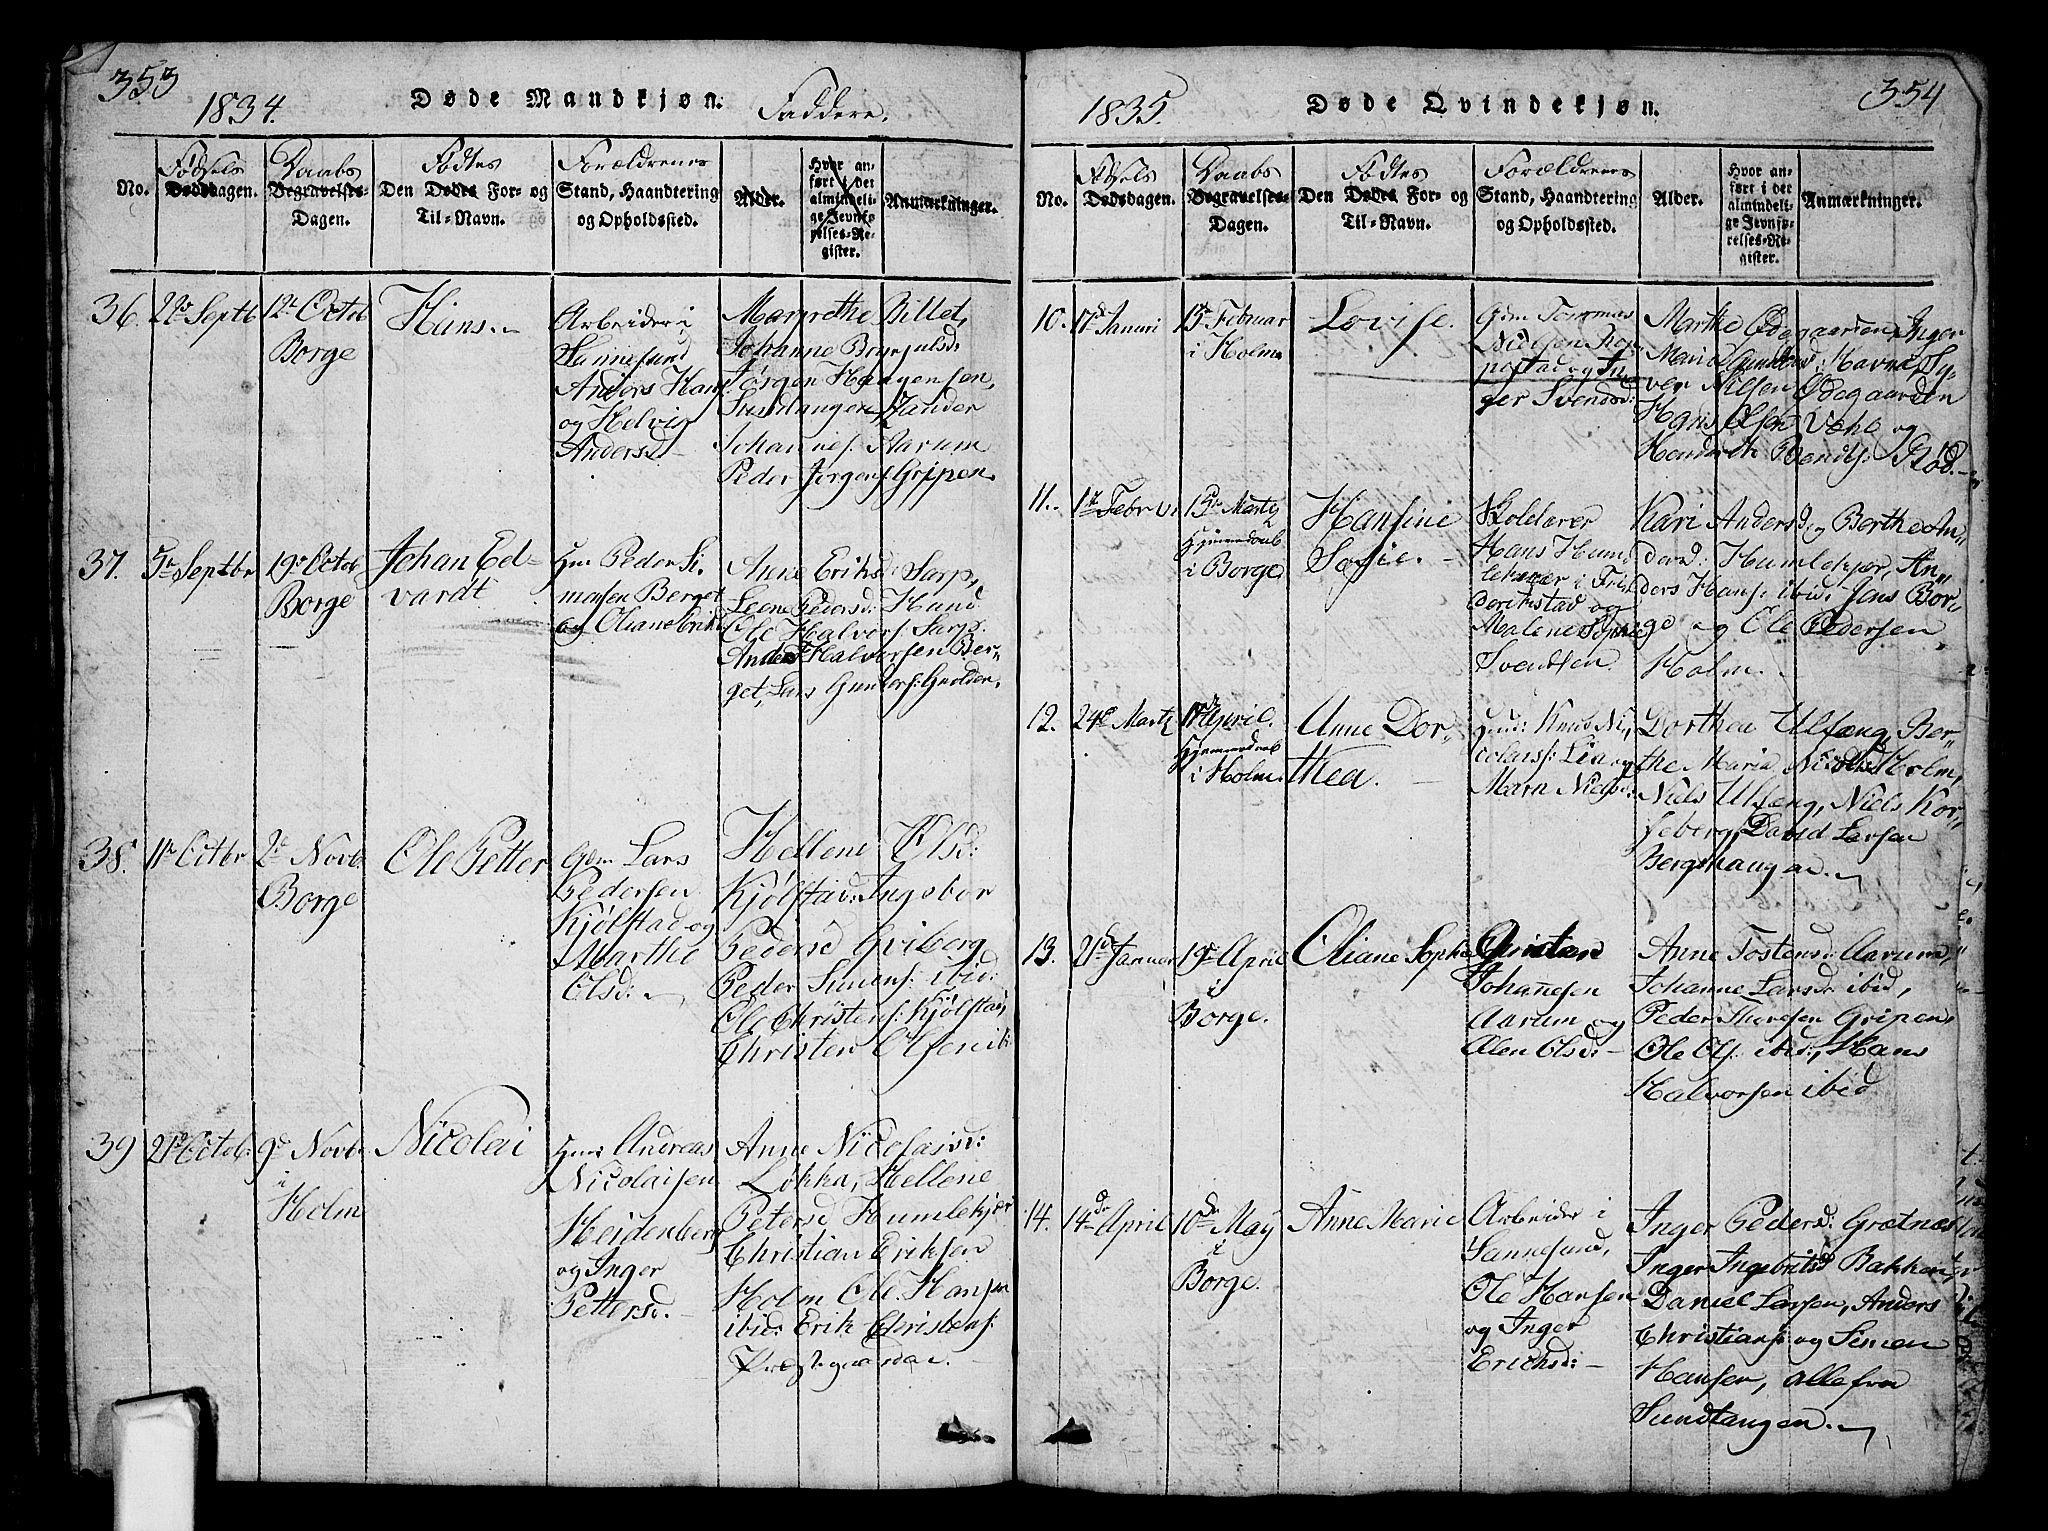 353
1834.
Døde Mandkjøn.
Faddere.
No.
Fødsels
Dødsdagen.
Daabs
Begravelses-
Dagen.
Fødtes
Den Dødes For- og
Til-Navn.
Forældrenes
Stand, Haandtering
og Opholdssted.
Alder.
Hvor an-
ført i det
almindeli-
ge Jevnfø-
relses-Re-
gister.
Anmærkninger.
36.
Septb
12te Octob
Borge
Hans.
Arbeider i
Sannesund
Anders Hans
og Helvig
Andersd
Margrethe Billet,
Johanne
Jørgen Haagensen,
Sundtangen, Zander
Johannes. Aarum
Peder Jørgens. Gripen.
37.
5te Septbr
19de Octob
Borge
Johan Ed-
vardt
Peder Si-
monsen Berget
og Oliane Eriksd
Anne Eriksd: Sarp,
Leene Pedersd:
Ole Halvors: Sarp.
Anders Halvorsen Ber-
get, Lars
38.
11te Octbr
2de Novb.
Borge
Ole Petter
Gdm Lars
Pedersen
Kjølstad og
Marthe
Olsd:
Hellene Olsd:
Kjølstad: Ingebor
Pedersd Gviberg
Peder Simens: ibid:
Ole Christens: Kjølstad,
Christen Olsen ib:
39
Octob:
9de Novb.
i
Holm
Nicolai
Huus: Andreas
Nicolaisen
Heidenberg
og Inger
Pettersd.
Anne Nicolaisd:
Løkka, Hellene
Petersd Humlekjær
Christian Eriksen
Holm Ole Hansen
ibid: Erik Christens:
Præstegaarden.
354
1835.
Døde Qvindekjøn.
No.
Fødsels
Dødsdagen.
Daabs
Begravelses-
Dagen.
Fødtes
Den Dødes For- og
Til-Navn.
Forældrenes
Stand, Haandtering
og Opholdssted.
Alder.
Hvor an-
ført i det
almindeli-
ge Jevnfø-
relses-Re-
gister.
Anmærkninger.
10.
17de Januri
15de Februar
i Holm
Lovise.
Gdm Tommas
og In-
ger Svendsd:
Marthe Ødegaarden, Inger
Marie
ver Nilsen Ødegaarden
Hans Olsen Væhl og
Hendrich Bendts: Rød.
11.
Febrv:
15de Martz
Hjemmedaab
i Borge
Hansine
Sofie.
Skolelærer
Hans Hum-
lekjær i Fri-
derikstad og
Malene Sophie
Svendsen
Kari Andersd. og Berthe An-
dersd: Humlekjær, An-
ders Hans: ibid: Jens Bor-
ge og Ole Pedersen
Holm.
12.
24de Martz
17de April.
Hjemmedaab
i Holm.
Anne Dor-
thea.
Huusm: Knud Ni-
colais: Lia og
Maren Nielsd:
Dorthea Ulfeng, Ber-
the Maria Nicolaisd Holm,
Niels Ulfeng, Niels Kor-
seberg, David Larsen
Bergshaugen.
13.
21de Januar
19de April
i
Borge.
Oliane Sophie
Christen
Johannesen
Aarum og
Olsd:
Anne Tostensd: Aarum,
Johanne Larsd: ibid,
Peder Thoresen Gripen,
Ole Ols. ibid:, Hans
Halvorsen ibid
14.
14de April
10de May
i
Borge.
Anne Marie
Arbeider i
Sannesund,
Ole Hansen
og Inger
Erichsd:
Inger Pedersd: Grætnes
Inger Ingebritsd Bakken
Daniel Larsen, Anders
Christians: og Simen
Hansen, alle fra
Sundtangen.